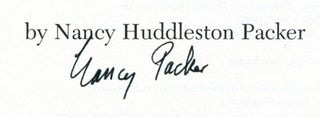 by Nancy Huddleston Packer
Nancy Packer